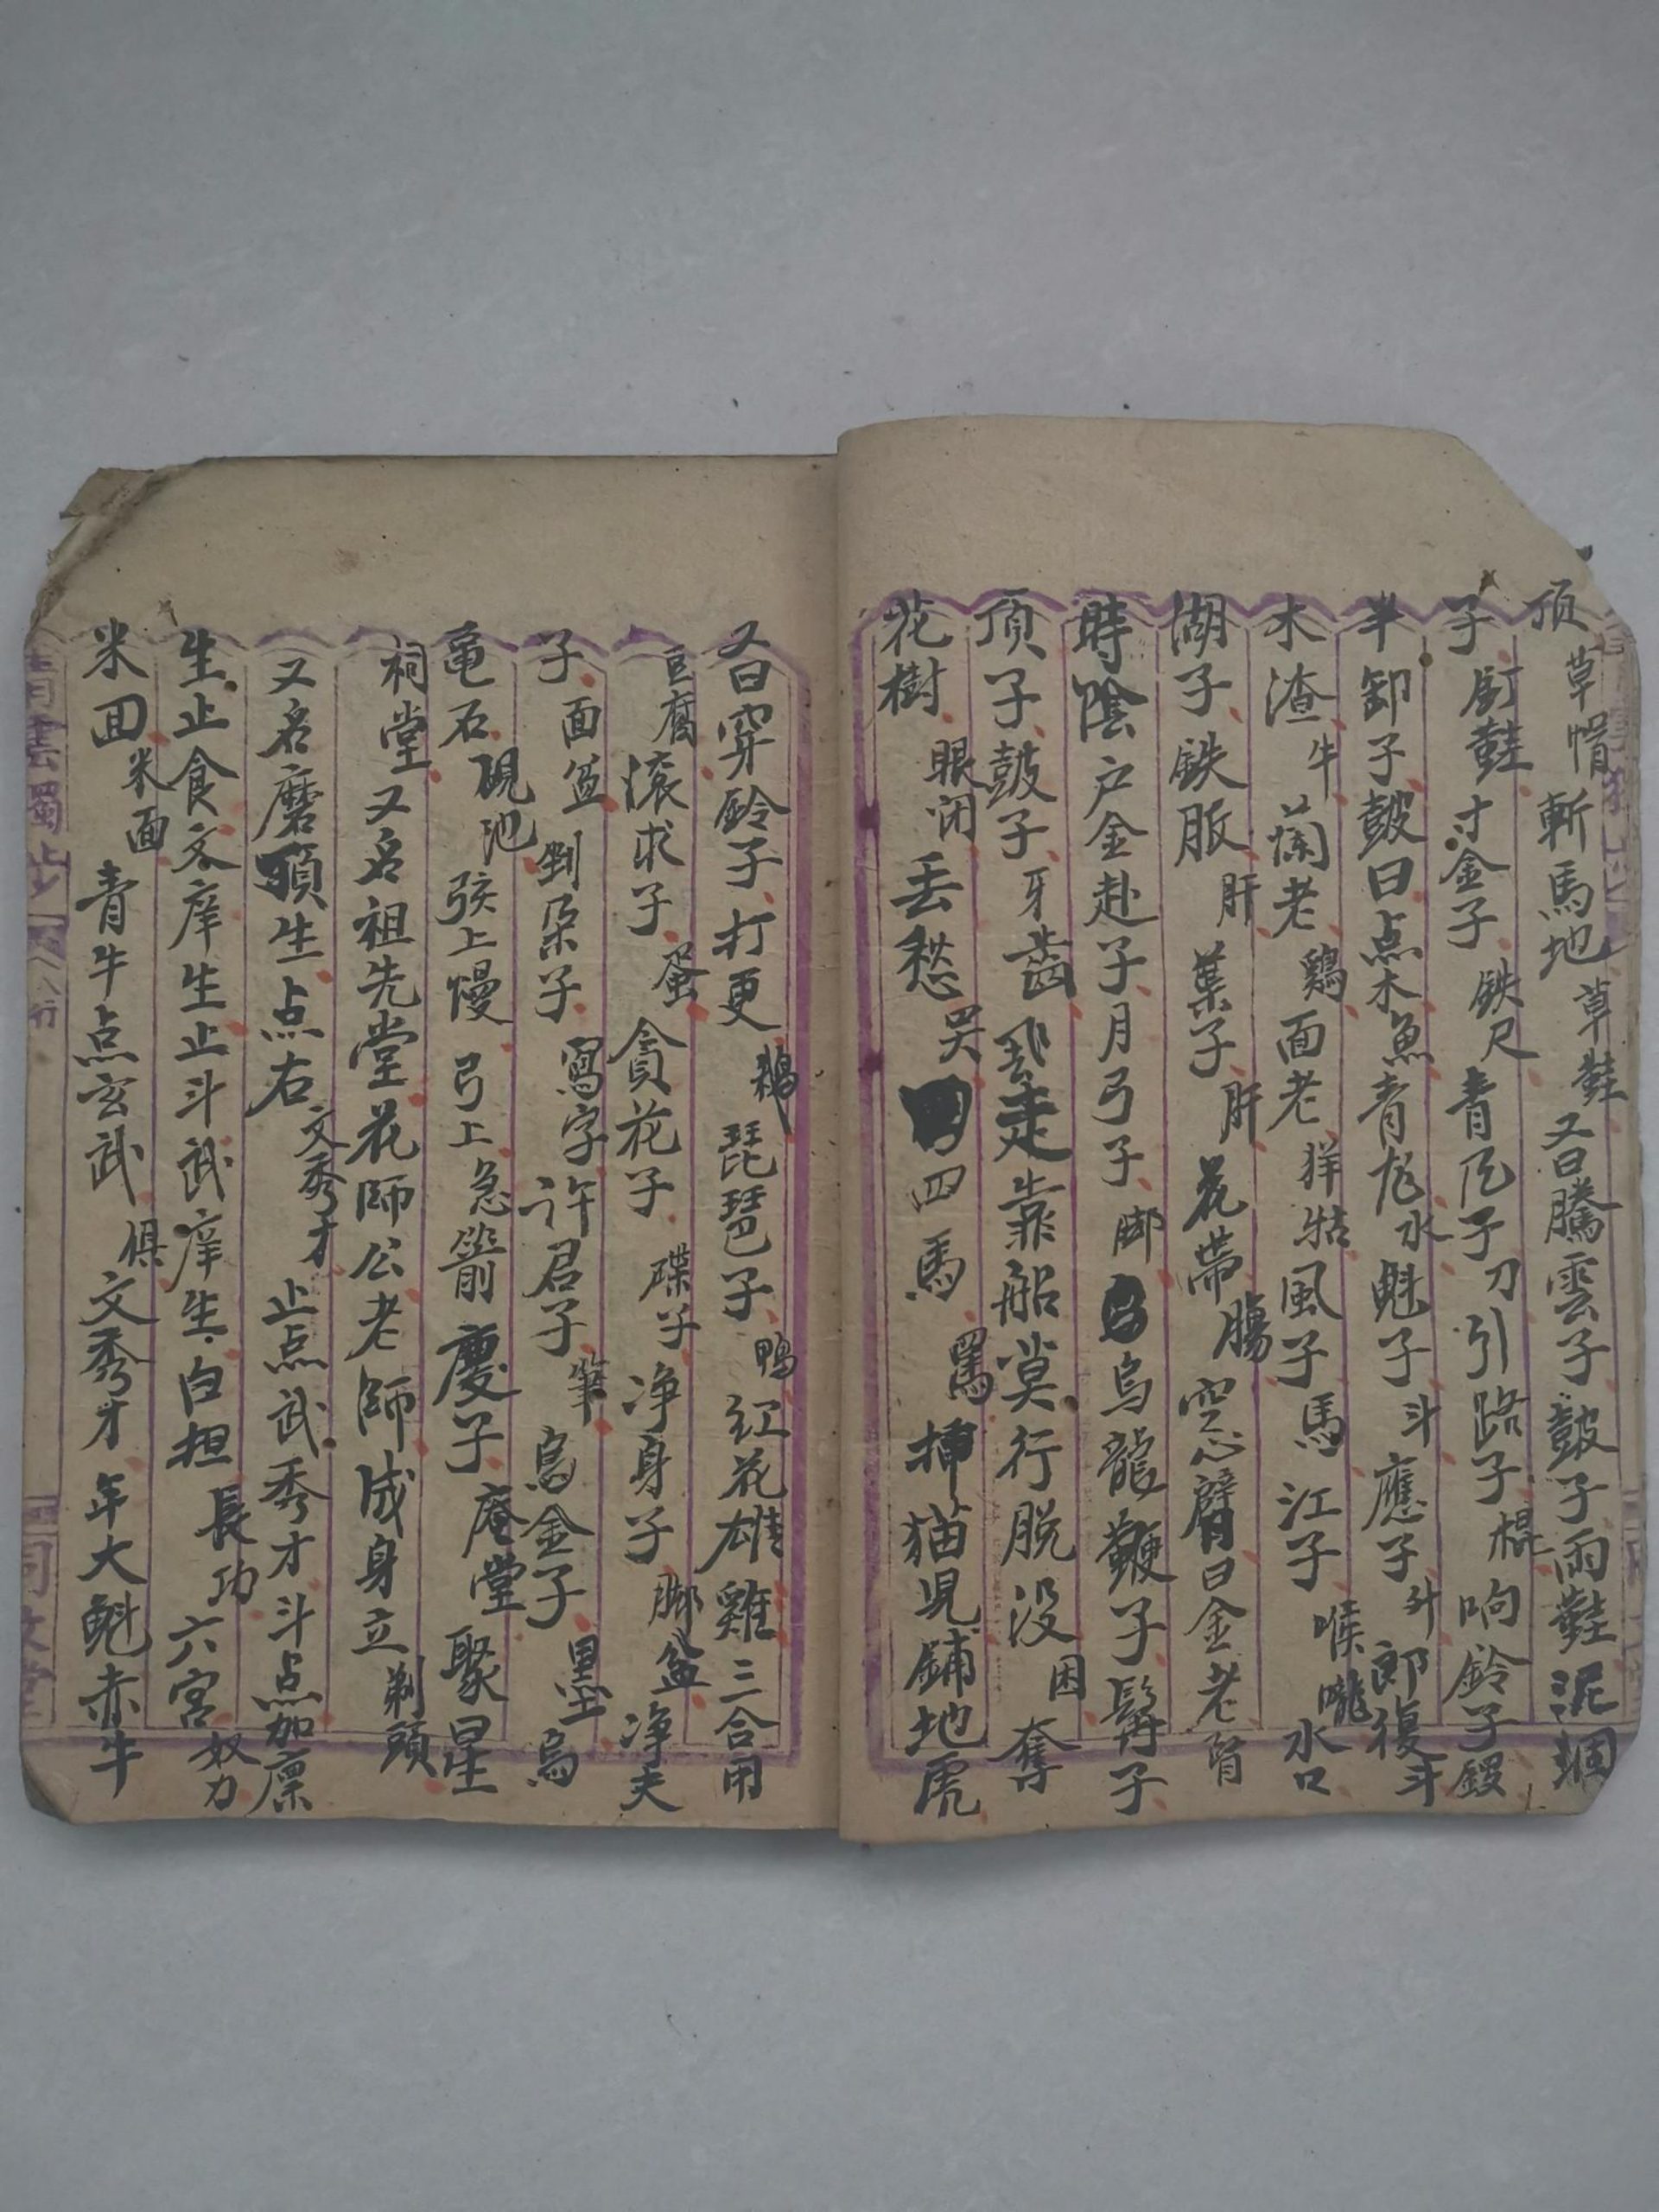 頂草帽斬馬地草鞋又曰騰雲子皷子雨鞋泥烟
子釘鞋寸金子鉄尺青尺子刀引路子棍响鈴子鍐
半卸子皷曰点木魚青龙水魁子斗應子斗郎復斗
木渣牛蘭老鷄面老羊牯風子馬江子喉嚨水口
湖子鉄脤肝葉子肝花帶腸窓臂曰金老肾
時陰户金赴子月弓子脚烏龍鞭子鬍子
頂子皷子牙齒飛走靠船莫行脱没困奪
花樹眼闭丢愁哭四馬罵掃猫児鋪地虎
又曰穿鈴子打更鵝琵琶子鴨紅花雄雞三合用
豆腐滚求子蛋貪花子碟子净身子脚盆净夫
子面盆剉朶子寫字許君子筆烏金子墨烏
亀石硯池弦上慢弓上急箭慶子庵堂聚星
祠堂又名祖先堂花師公老師成身立剃頭
又名磨頭生点右文秀才止点武秀才斗点加廪
生止食文庠生止斗武庠生白担長功六宮奴力
米面米面青牛点玄武俱文秀才年大魁赤牛